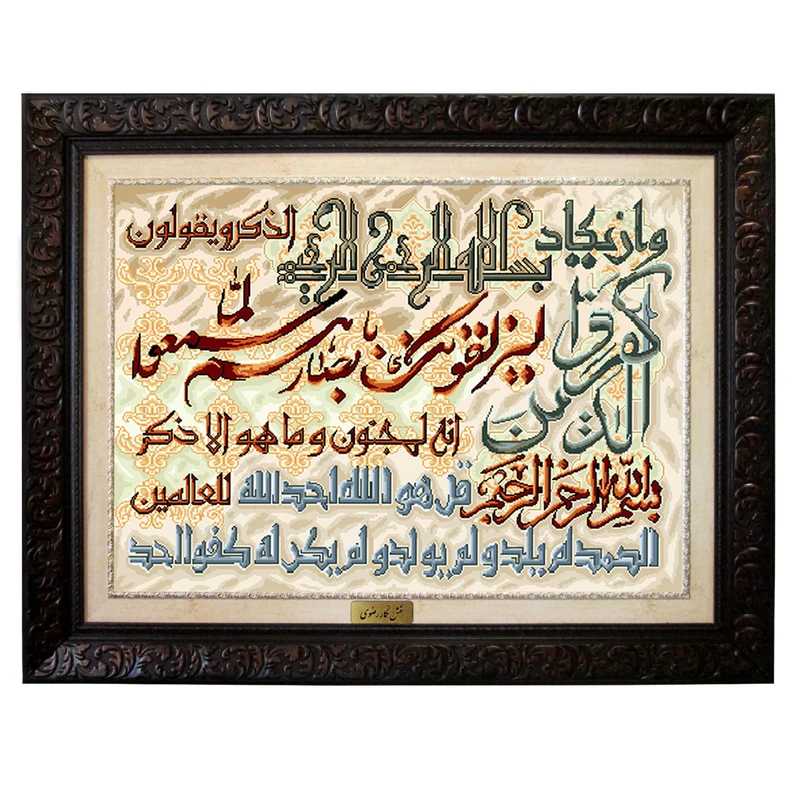 بسم الله الرحمن الرحيم
وان يكاد
الذين كفروا
ليزلقونك بابصارهم لما سمعوا
الذكر ويقولون
انه لمجنون وما هو الا ذكر
للعالمين
بسم الله الرحمن الرحيم
قل هو الله احد الله
الصمد لم يلد و لم يولد و لم يكن له كفوا احد
نقش نگار رضوی